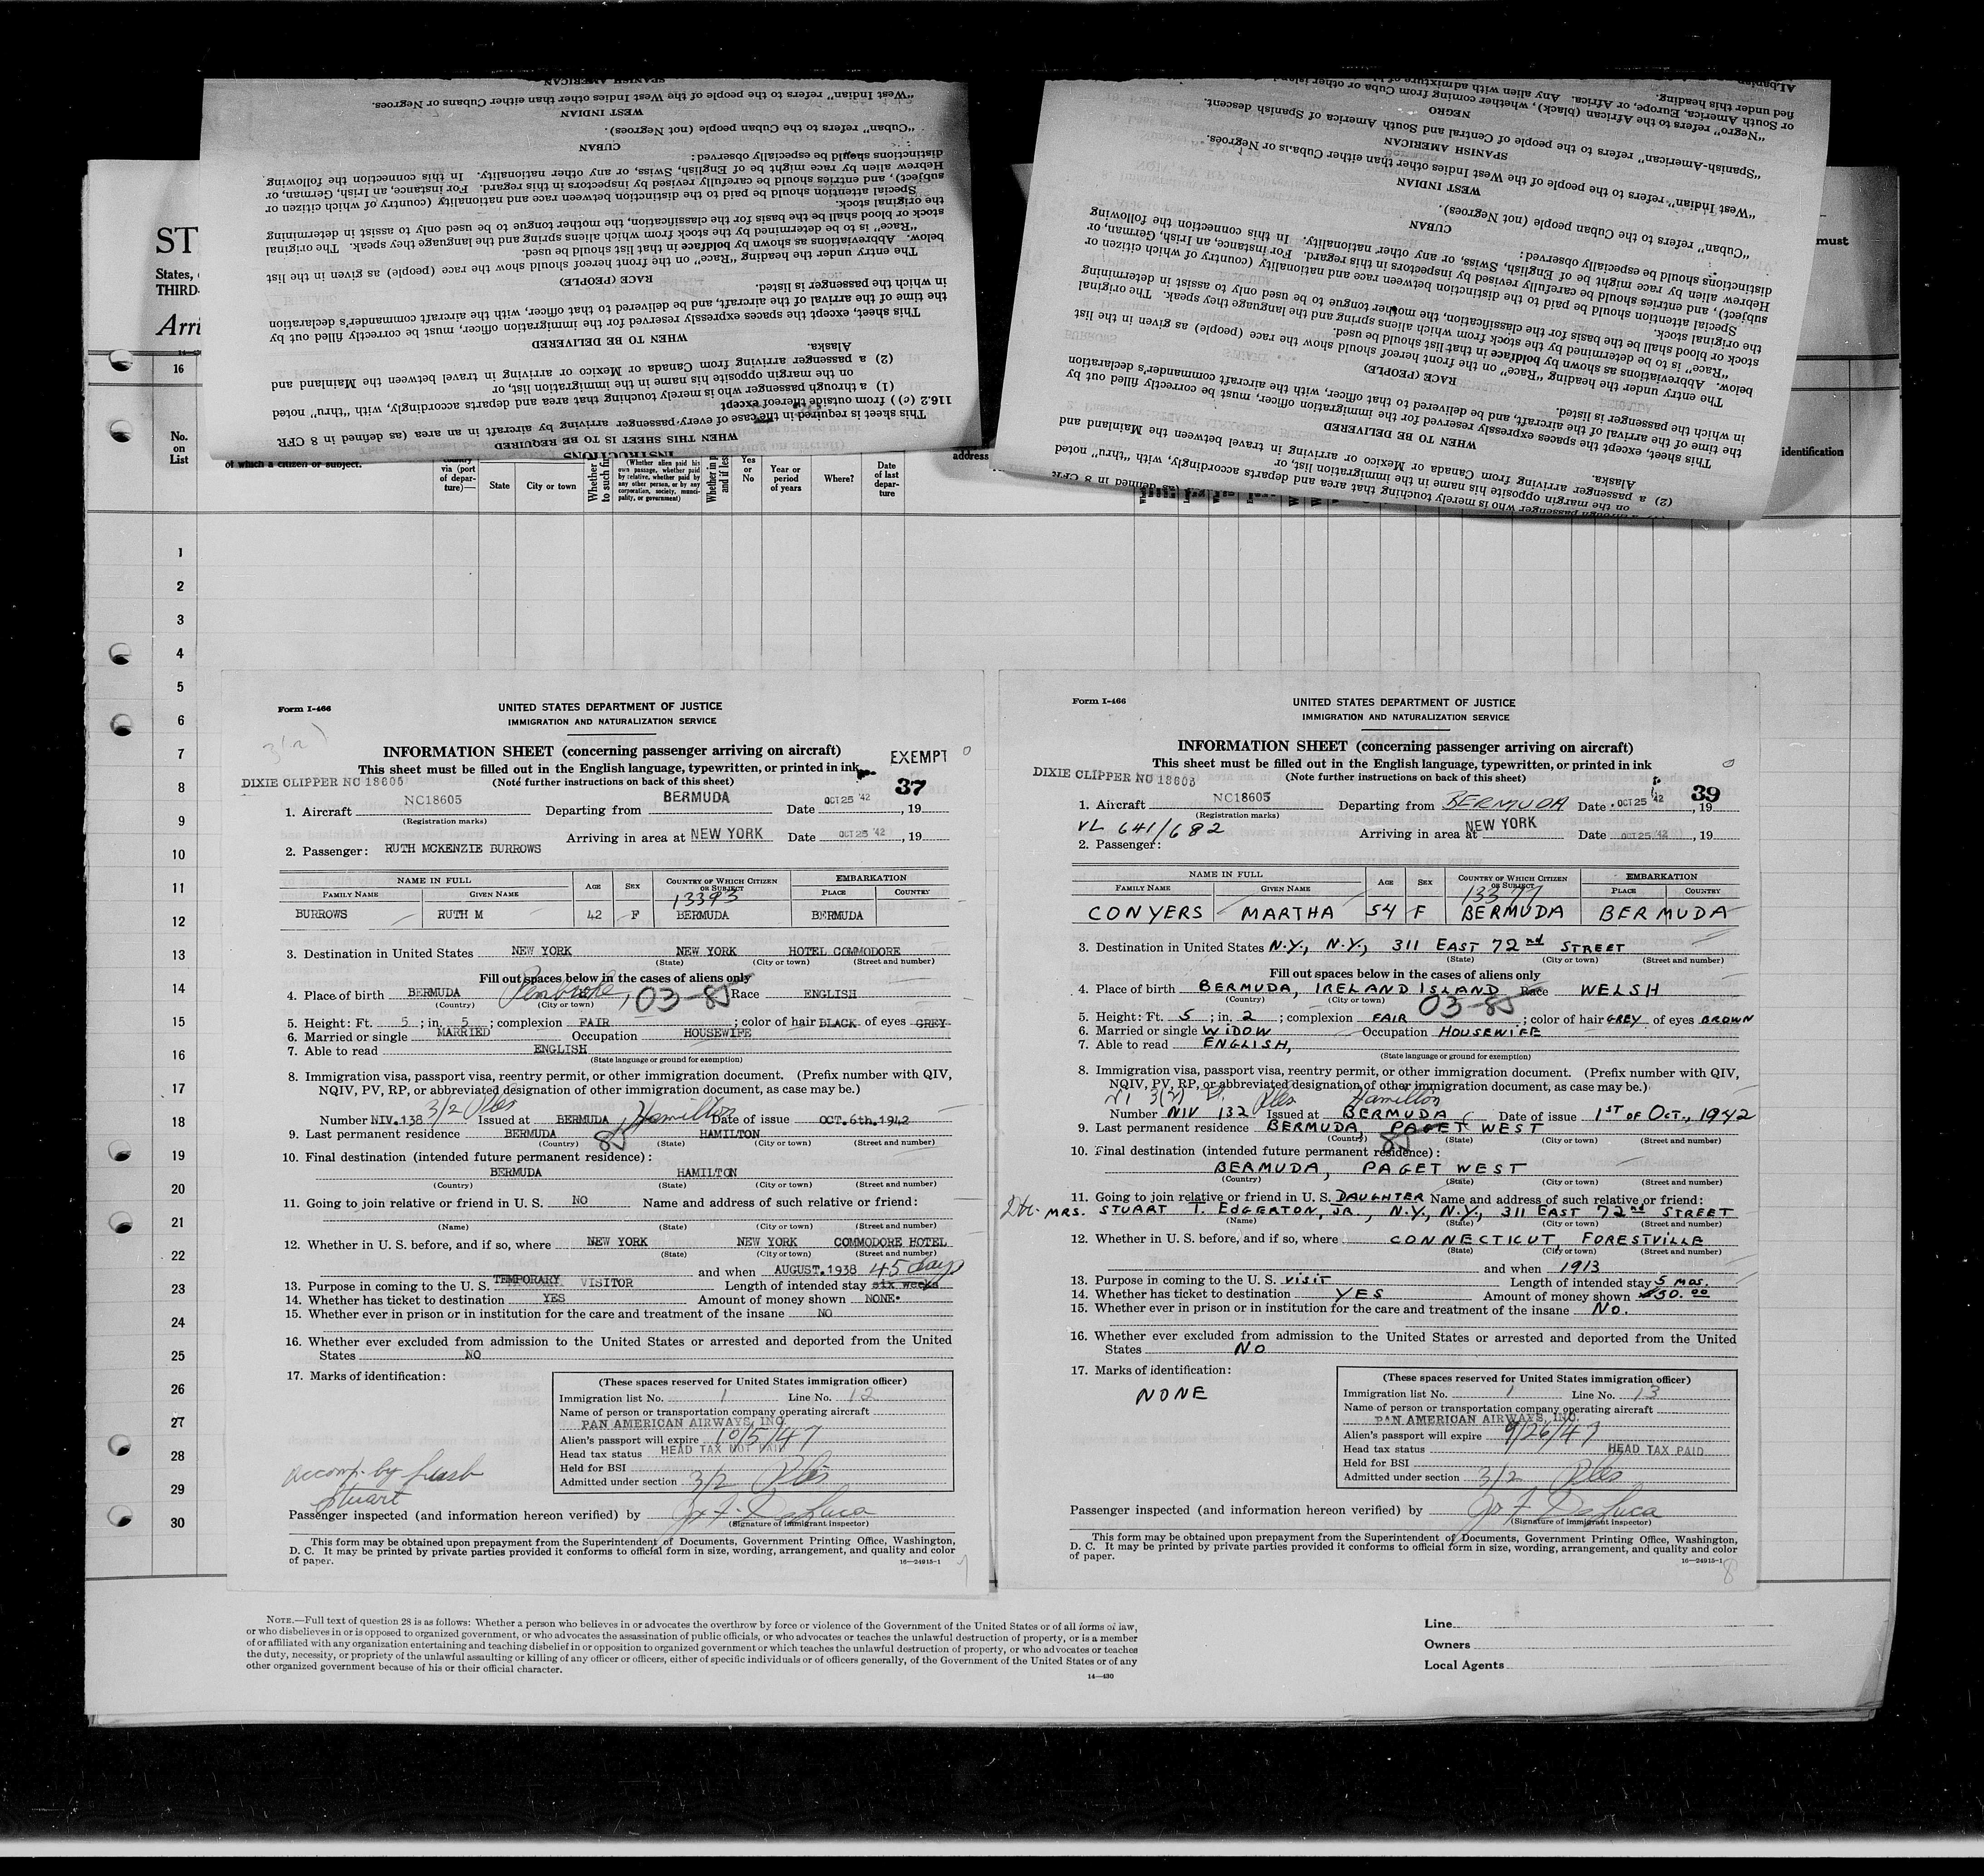 SPANISH AMERICAN
"West Indian" refers to the people of the West Indies other than either Cubans or Negroes.
WEST INDIAN
"Cuban" refers to the Cuban people (not Negroes).
CUBAN
distinctions should be especially observed:
Hebrew alien by race might be of English, Swiss, or any other nationality. In this connection the following
subject), and entries should be carefully revised by inspectors in this regard. For instance, an Irish, German, or
Special attention should be paid to the distinction between race and nationality (country of which citizen or
the original stock.
stock or blood shall be the basis for the classification, the mother tongue to be used only to assist in determining
"Race" is to be determined by the stock from which aliens spring and the language they speak. The original
below. Abbreviations as shown by boldface in that list should be used.
The entry under the heading "Race" on the front hereof should show the race (people) as given in the list
RACE (PEOPLE)
in which the passenger is listed.
the time of the arrival of the aircraft, and be delivered to that officer, with the aircraft commander's declaration
This sheet, except the spaces expressly reserved for the immigration officer, must be correctly filled out by
WHEN TO BE DELIVERED
Alaska.
(2) a passenger arriving from Canada or Mexico or arriving in travel between the Mainland and
on the margin opposite his name in the immigration list, or
(1) a through passenger who is merely touching that area and departs accordingly, with "thru" noted
116.2 (c)) from outside thereof except
This sheet is required in the case of every passenger arriving by aircraft in an area (as defined in 8 CFR
WHEN THIS SHEET IS TO BE REQUIRED
INSTRUCTIONS
Albanian
fied under this heading.
or South America, Europe, or Africa. Any alien with admixture of
"Negro" refers to the African (black), whether coming from Cuba or other
NEGRO
"Spanish-American" refers to the people of Central and South America of Spanish descent.
SPANISH AMERICAN
"West Indian" refers to the people of the West Indies other than either Cubans or Negroes.
WEST INDIAN
"Cuban" refers to the Cuban people (not Negroes).
CUBAN
distinctions should be especially observed:
Hebrew alien by race might be of English, Swiss, or any other nationality. In this connection the following
subject), and entries should be carefully revised by inspectors in this regard. For instance, an Irish, German, or
Special attention should be paid to the distinction between race and nationality (country of which citizen or
the original stock.
stock or blood shall be the basis for the classification, the mother tongue to be used only to assist in determining
"Race" is to be determined by the stock from which aliens spring and the language they speak. The original
below. Abbreviations as shown by boldface in that list should be used.
The entry under the heading "Race" on the front hereof should show the race (people) as given in the list
RACE (PEOPLE)
in which the passenger is listed.
the time of the arrival of the aircraft, and be delivered to that officer, with the aircraft commander's declaration
This sheet, except the spaces expressly reserved for the immigration officer, must be correctly filled out by
WHEN TO BE DELIVERED
Alaska.
(2) a passenger arriving from Canada or Mexico or arriving in travel between the Mainland and
on the margin opposite his name in the immigration list, or
through passenger who is merely touching that area and departs accordingly, with "thru" noted
(as defined in 8 CFR
ST
States,
THIRD-
Arri
must
16
No. on List
of which a citizen or subject.
via (port of departure)—
State
City or town
(Whether alien paid his own passage, whether paid by relative, whether paid by any other person, or by any corporation, society, municipality, or government)
Yes or No
Year or period of years
Where?
Date of last departure
address
identification
1
2
3
4
5
6
7
8
9
10
11
12
13
14
15
16
17
18
19
20
21
22
23
24
25
26
27
28
29
30
Form I-466
UNITED STATES DEPARTMENT OF JUSTICE
IMMIGRATION AND NATURALIZATION SERVICE
INFORMATION SHEET (concerning passenger arriving on aircraft)
EXEMPT
This sheet must be filled out in the English language, typewritten, or printed in ink
DIXIE CLIPPER NC 18605 (Note further instructions on back of this sheet) 37
1. Aircraft NC18605 Departing from BERMUDA Date OCT 25 '42, 19
(Registration marks)
Arriving in area at NEW YORK Date OCT 25 '42, 19
2. Passenger: RUTH MCKENZIE BURROWS
NAME IN FULL AGE SEX COUNTRY OF WHICH CITIZEN OR SUBJECT EMBARKATION
FAMILY NAME GIVEN NAME 13393 PLACE COUNTRY
BURROWS RUTH M 42 F BERMUDA BERMUDA
3. Destination in United States NEW YORK NEW YORK HOTEL COMMODORE
(State) (City or town) (Street and number)
Fill out spaces below in the cases of aliens only
4. Place of birth BERMUDA Pembroke, 03-85 Race ENGLISH
(Country) (City or town)
5. Height: Ft. 5; in. 5; complexion FAIR; color of hair BLACK of eyes GREY
6. Married or single MARRIED Occupation HOUSEWIFE
7. Able to read ENGLISH
(State language or ground for exemption)
8. Immigration visa, passport visa, reentry permit, or other immigration document. (Prefix number with QIV,
NQIV, PV, RP, or abbreviated designation of other immigration document, as case may be.)
3/2 Hamilton
Number NIV.138 Issued at BERMUDA Date of issue OCT.6th.1942
9. Last permanent residence BERMUDA 85 HAMILTON
(Country) (State) (City or town) (Street and number)
10. Final destination (intended future permanent residence):
BERMUDA HAMILTON
(Country) (State) (City or town) (Street and number)
11. Going to join relative or friend in U. S. NO Name and address of such relative or friend:
(Name) (State) (City or town) (Street and number)
12. Whether in U. S. before, and if so, where NEW YORK NEW YORK COMMODORE HOTEL
(State) (City or town) (Street and number)
and when AUGUST.1938 45 days
13. Purpose in coming to the U. S. TEMPORARY VISITOR Length of intended stay six weeks
14. Whether has ticket to destination YES Amount of money shown NONE.
15. Whether ever in prison or in institution for the care and treatment of the insane NO
16. Whether ever excluded from admission to the United States or arrested and deported from the United
States NO
17. Marks of identification:
(These spaces reserved for United States immigration officer)
Immigration list No. 1 Line No. 12
Name of person or transportation company operating aircraft
PAN AMERICAN AIRWAYS, INC.
Alien's passport will expire 10/5/47
Head tax status HEAD TAX NOT PAID
Held for BSI
Admitted under section 3/2
accomp. by
Stuart
Passenger inspected (and information hereon verified) by
(Signature of immigrant inspector)
This form may be obtained upon prepayment from the Superintendent of Documents, Government Printing Office, Washington,
D. C. It may be printed by private parties provided it conforms to official form in size, wording, arrangement, and quality and color
of paper.
16—24915-1
Form I-466
UNITED STATES DEPARTMENT OF JUSTICE
IMMIGRATION AND NATURALIZATION SERVICE
INFORMATION SHEET (concerning passenger arriving on aircraft)
This sheet must be filled out in the English language, typewritten, or printed in ink
DIXIE CLIPPER NC 18605 (Note further instructions on back of this sheet) 39
1. Aircraft NC18605 Departing from BERMUDA Date OCT 25 '42, 19
(Registration marks)
VL 641/682 Arriving in area at NEW YORK Date OCT 25 '42, 19
2. Passenger:
NAME IN FULL AGE SEX COUNTRY OF WHICH CITIZEN OR SUBJECT EMBARKATION
FAMILY NAME GIVEN NAME 13377 PLACE COUNTRY
CONYERS MARTHA 54 F BERMUDA BERMUDA
3. Destination in United States N.Y., N.Y., 311 EAST 72nd STREET
(State) (City or town) (Street and number)
Fill out spaces below in the cases of aliens only
4. Place of birth BERMUDA, IRELAND ISLAND Race WELSH
(Country) (City or town) 03-85
5. Height: Ft. 5; in. 2; complexion FAIR; color of hair GREY of eyes BROWN
6. Married or single WIDOW Occupation HOUSEWIFE
7. Able to read ENGLISH,
(State language or ground for exemption)
8. Immigration visa, passport visa, reentry permit, or other immigration document. (Prefix number with QIV,
NQIV, PV, RP, or abbreviated designation of other immigration document, as case may be.)
3(2) Hamilton
Number NIV 132 Issued at BERMUDA Date of issue 1ST OF OCT., 1942
9. Last permanent residence BERMUDA, PAGET WEST
(Country) 85 (State) (City or town) (Street and number)
10. Final destination (intended future permanent residence):
BERMUDA, PAGET WEST
(Country) (State) (City or town) (Street and number)
11. Going to join relative or friend in U. S. DAUGHTER Name and address of such relative or friend:
MRS. STUART T. EDGERTON, JR., N.Y., N.Y., 311 EAST 72nd STREET
(Name) (State) (City or town) (Street and number)
12. Whether in U. S. before, and if so, where CONNECTICUT, FORESTVILLE
(State) (City or town) (Street and number)
and when 1913
13. Purpose in coming to the U. S. VISIT Length of intended stay 5 mos.
14. Whether has ticket to destination YES Amount of money shown $50.00
15. Whether ever in prison or in institution for the care and treatment of the insane No.
16. Whether ever excluded from admission to the United States or arrested and deported from the United
States No
17. Marks of identification:
NONE
(These spaces reserved for United States immigration officer)
Immigration list No. 1 Line No. 13
Name of person or transportation company operating aircraft
PAN AMERICAN AIRWAYS, INC.
Alien's passport will expire 9/26/47
Head tax status HEAD TAX PAID
Held for BSI
Admitted under section 3/2
Passenger inspected (and information hereon verified) by
(Signature of immigrant inspector)
This form may be obtained upon prepayment from the Superintendent of Documents, Government Printing Office, Washington,
D. C. It may be printed by private parties provided it conforms to official form in size, wording, arrangement, and quality and color
of paper.
16—24915-1
8
NOTE.—Full text of question 28 is as follows: Whether a person who believes in or advocates the overthrow by force or violence of the Government of the United States or of all forms of law,
or who disbelieves in or is opposed to organized government, or who advocates the assassination of public officials, or who advocates or teaches the unlawful destruction of property, or is a member
of or affiliated with any organization entertaining and teaching disbelief in or opposition to organized government or which teaches the unlawful destruction of property, or who advocates or teaches
the duty, necessity, or propriety of the unlawful assaulting or killing of any officer or officers, either of specific individuals or of officers generally, of the Government of the United States or of any
other organized government because of his or their official character.
14—430
Line
Owners
Local Agents